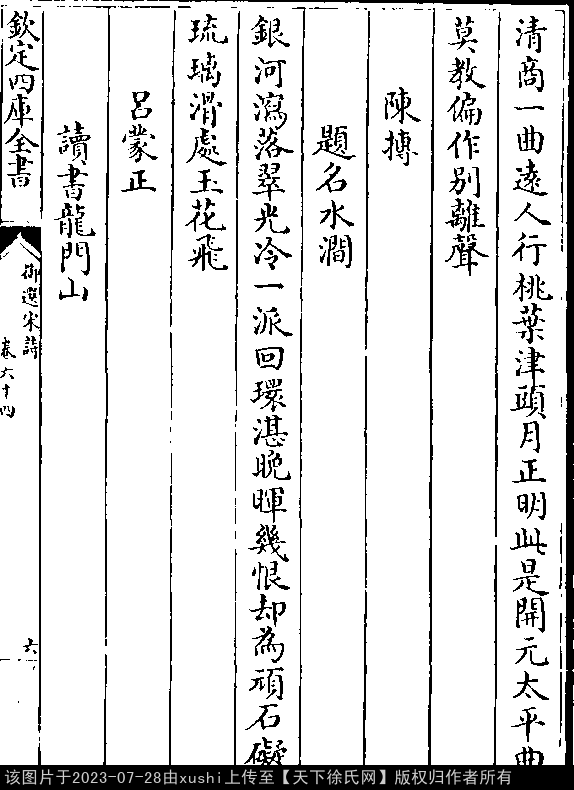 清商一曲遠人行桃葉津頭月正明此是開元太平曲
莫教偏作别離聲
陳摶
題名水澗
銀河瀉落翠光冷一派回環湛晚暉幾恨却為頑石礙
琉璃滑處玉花飛
呂蒙正
讀書龍門山
欽定四庫全書
御選宋詩
卷六十四
六
该图片于2023-07-28由xushi上传至【天下徐氏网】版权归作者所有